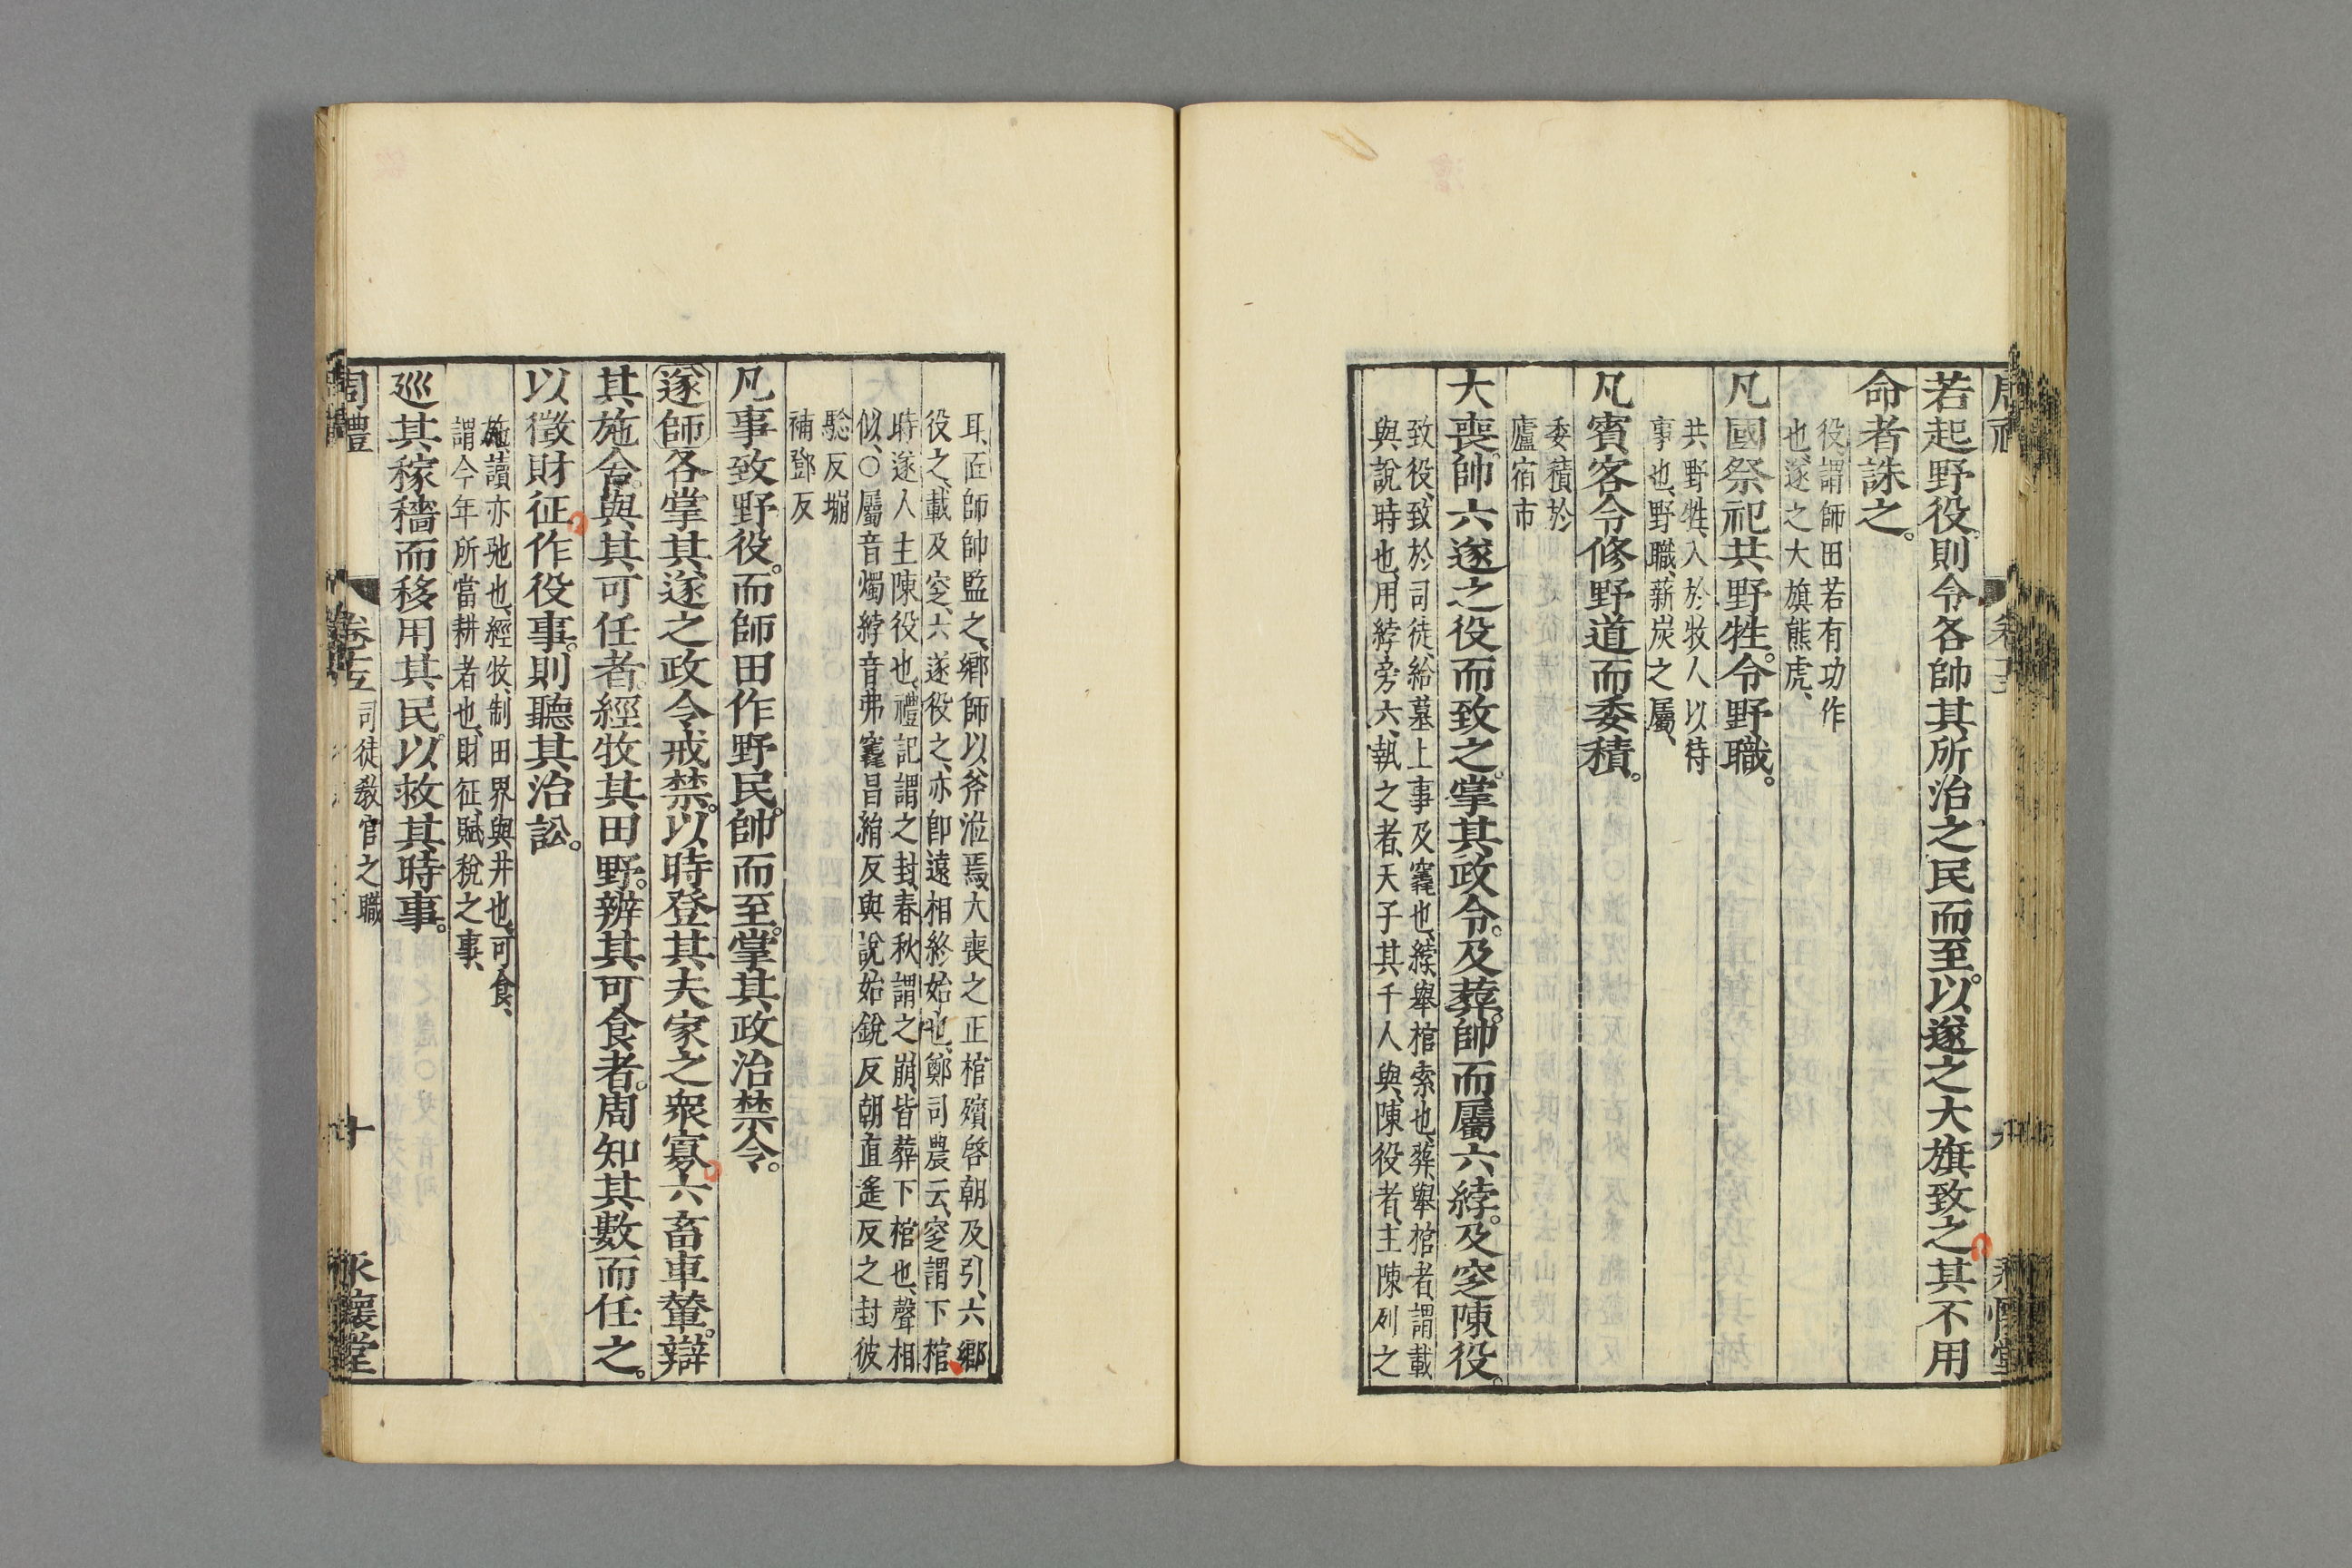 若起野役。則令各帥其所治之民而至。以遂之大旗致之其不用
命者誅之。
役、謂師田若有功作
也、遂之大旗、熊虎、
凡國祭祀共野牲。令野職。
共野牲、入於牧人以待
事也、野職、薪炭之屬、
凡賓客令修野道而委積。
委積於
廬宿市
大喪。帥六遂之役而致之。掌其政令。及葬。帥而屬六綍。及窆陳役。
致役、致於司徒、給墓上事及竁也、綍、舉棺索也、葬舉棺者、謂載
與說時也、用綍旁六、執之者、天子其千人與、陳役者、主陳列之
耳、匠師帥監之、鄉師以斧涖焉、大喪之正棺殯啓朝及引、六鄉
役之、載及窆、六遂役之、亦卽遠相終始也、鄭司農云、窆謂下棺
時、遂人主陳役也、禮記謂之封、春秋謂之崩、皆葬下棺也、聲相
似、○屬音燭綍音弗竁昌絹反與說始銳反朝直遙反之封彼
驗反堋
補鄧反
凡事致野役。而師田作野民。帥而至。掌其政治禁令。
遂師各掌其遂之政令戒禁。以時登其夫家之衆寡六畜車輦。辯
其施舍。與其可任者。經牧其田野。辨其可食者。周知其數而任之。
以徵財征作役事。則聽其治訟。
施、讀亦弛也、經牧、制田界與井也、可食、
謂今年所當耕者也、財征、賦稅之事、
巡其稼穡而移用其民。以救其時事。
周禮 卷十五 司徒敎官之職 十 永懷堂